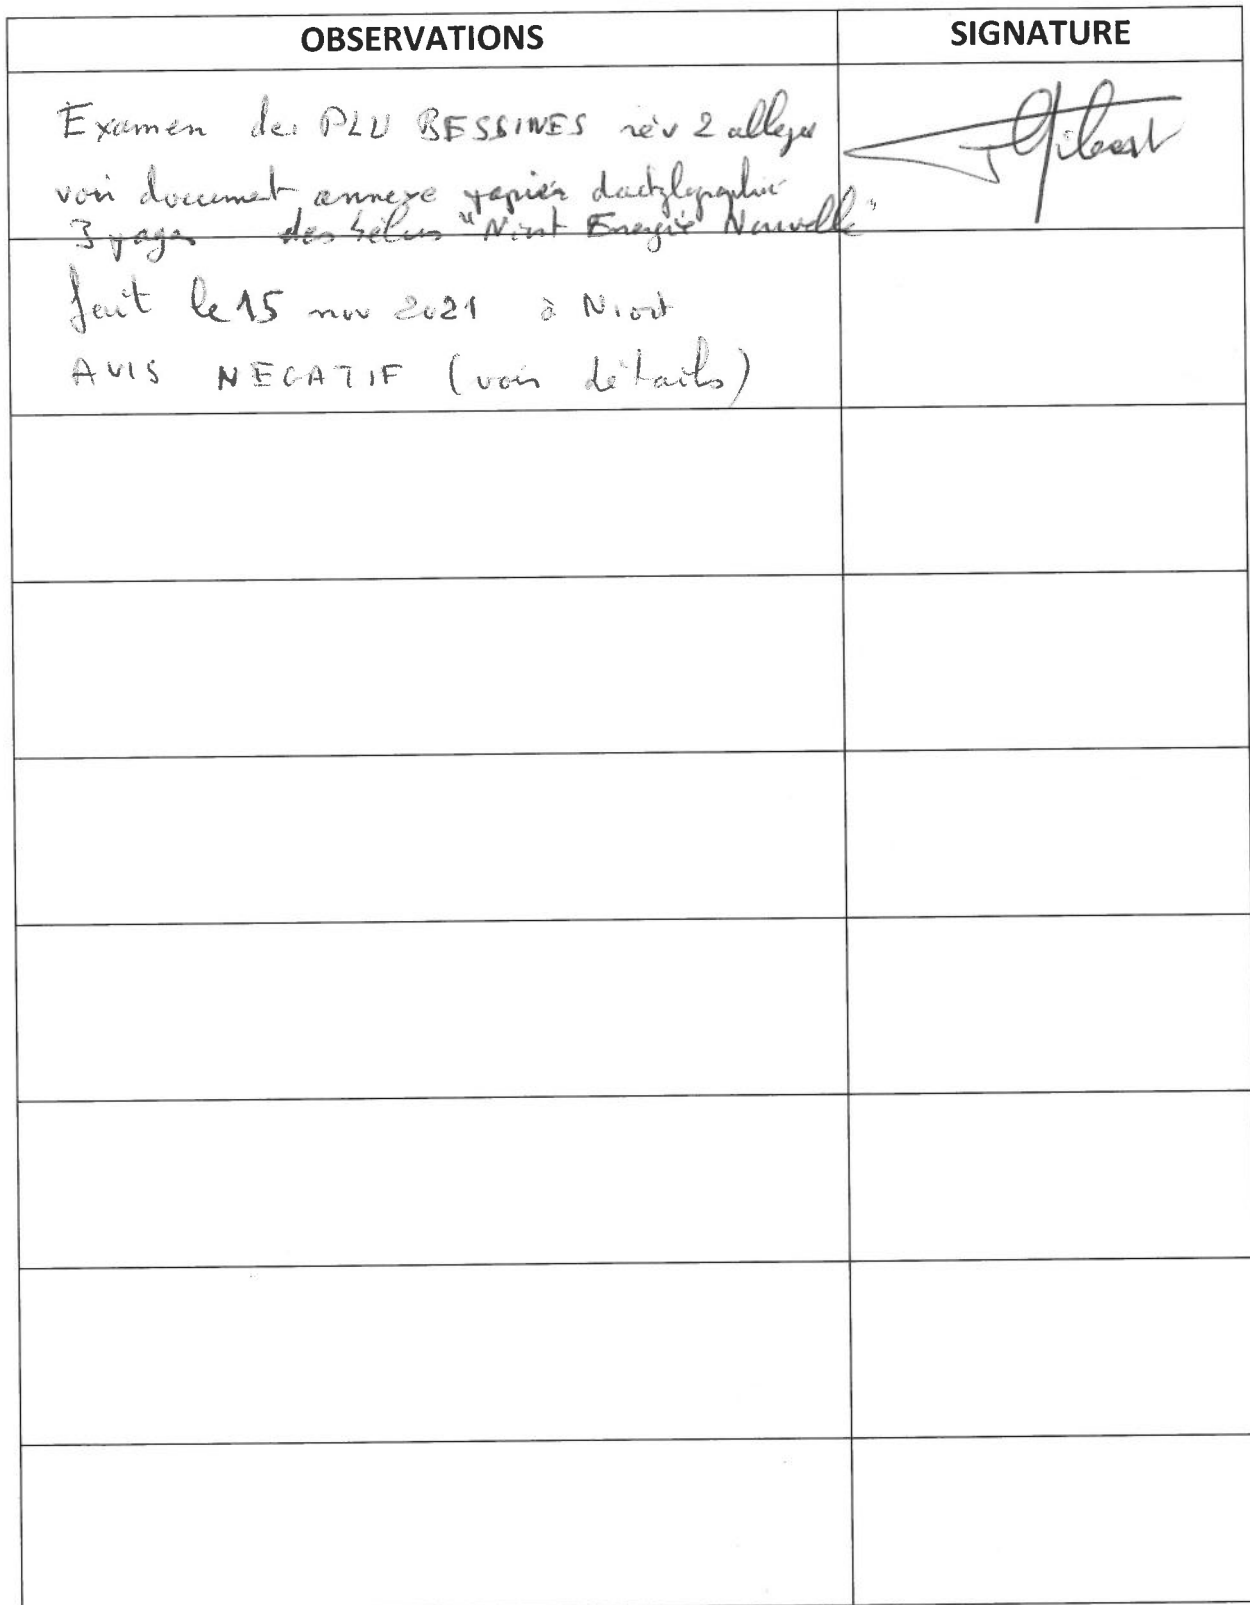 OBSERVATIONS
SIGNATURE
Examen des PLU BESSINES rév 2 allégé
voir document annexe papier dactylographié
3 pages des élus "Niort Energie Nouvelle"
fait le 15 nov 2021 à Niort
AVIS NEGATIF (voir détails)
Gibert